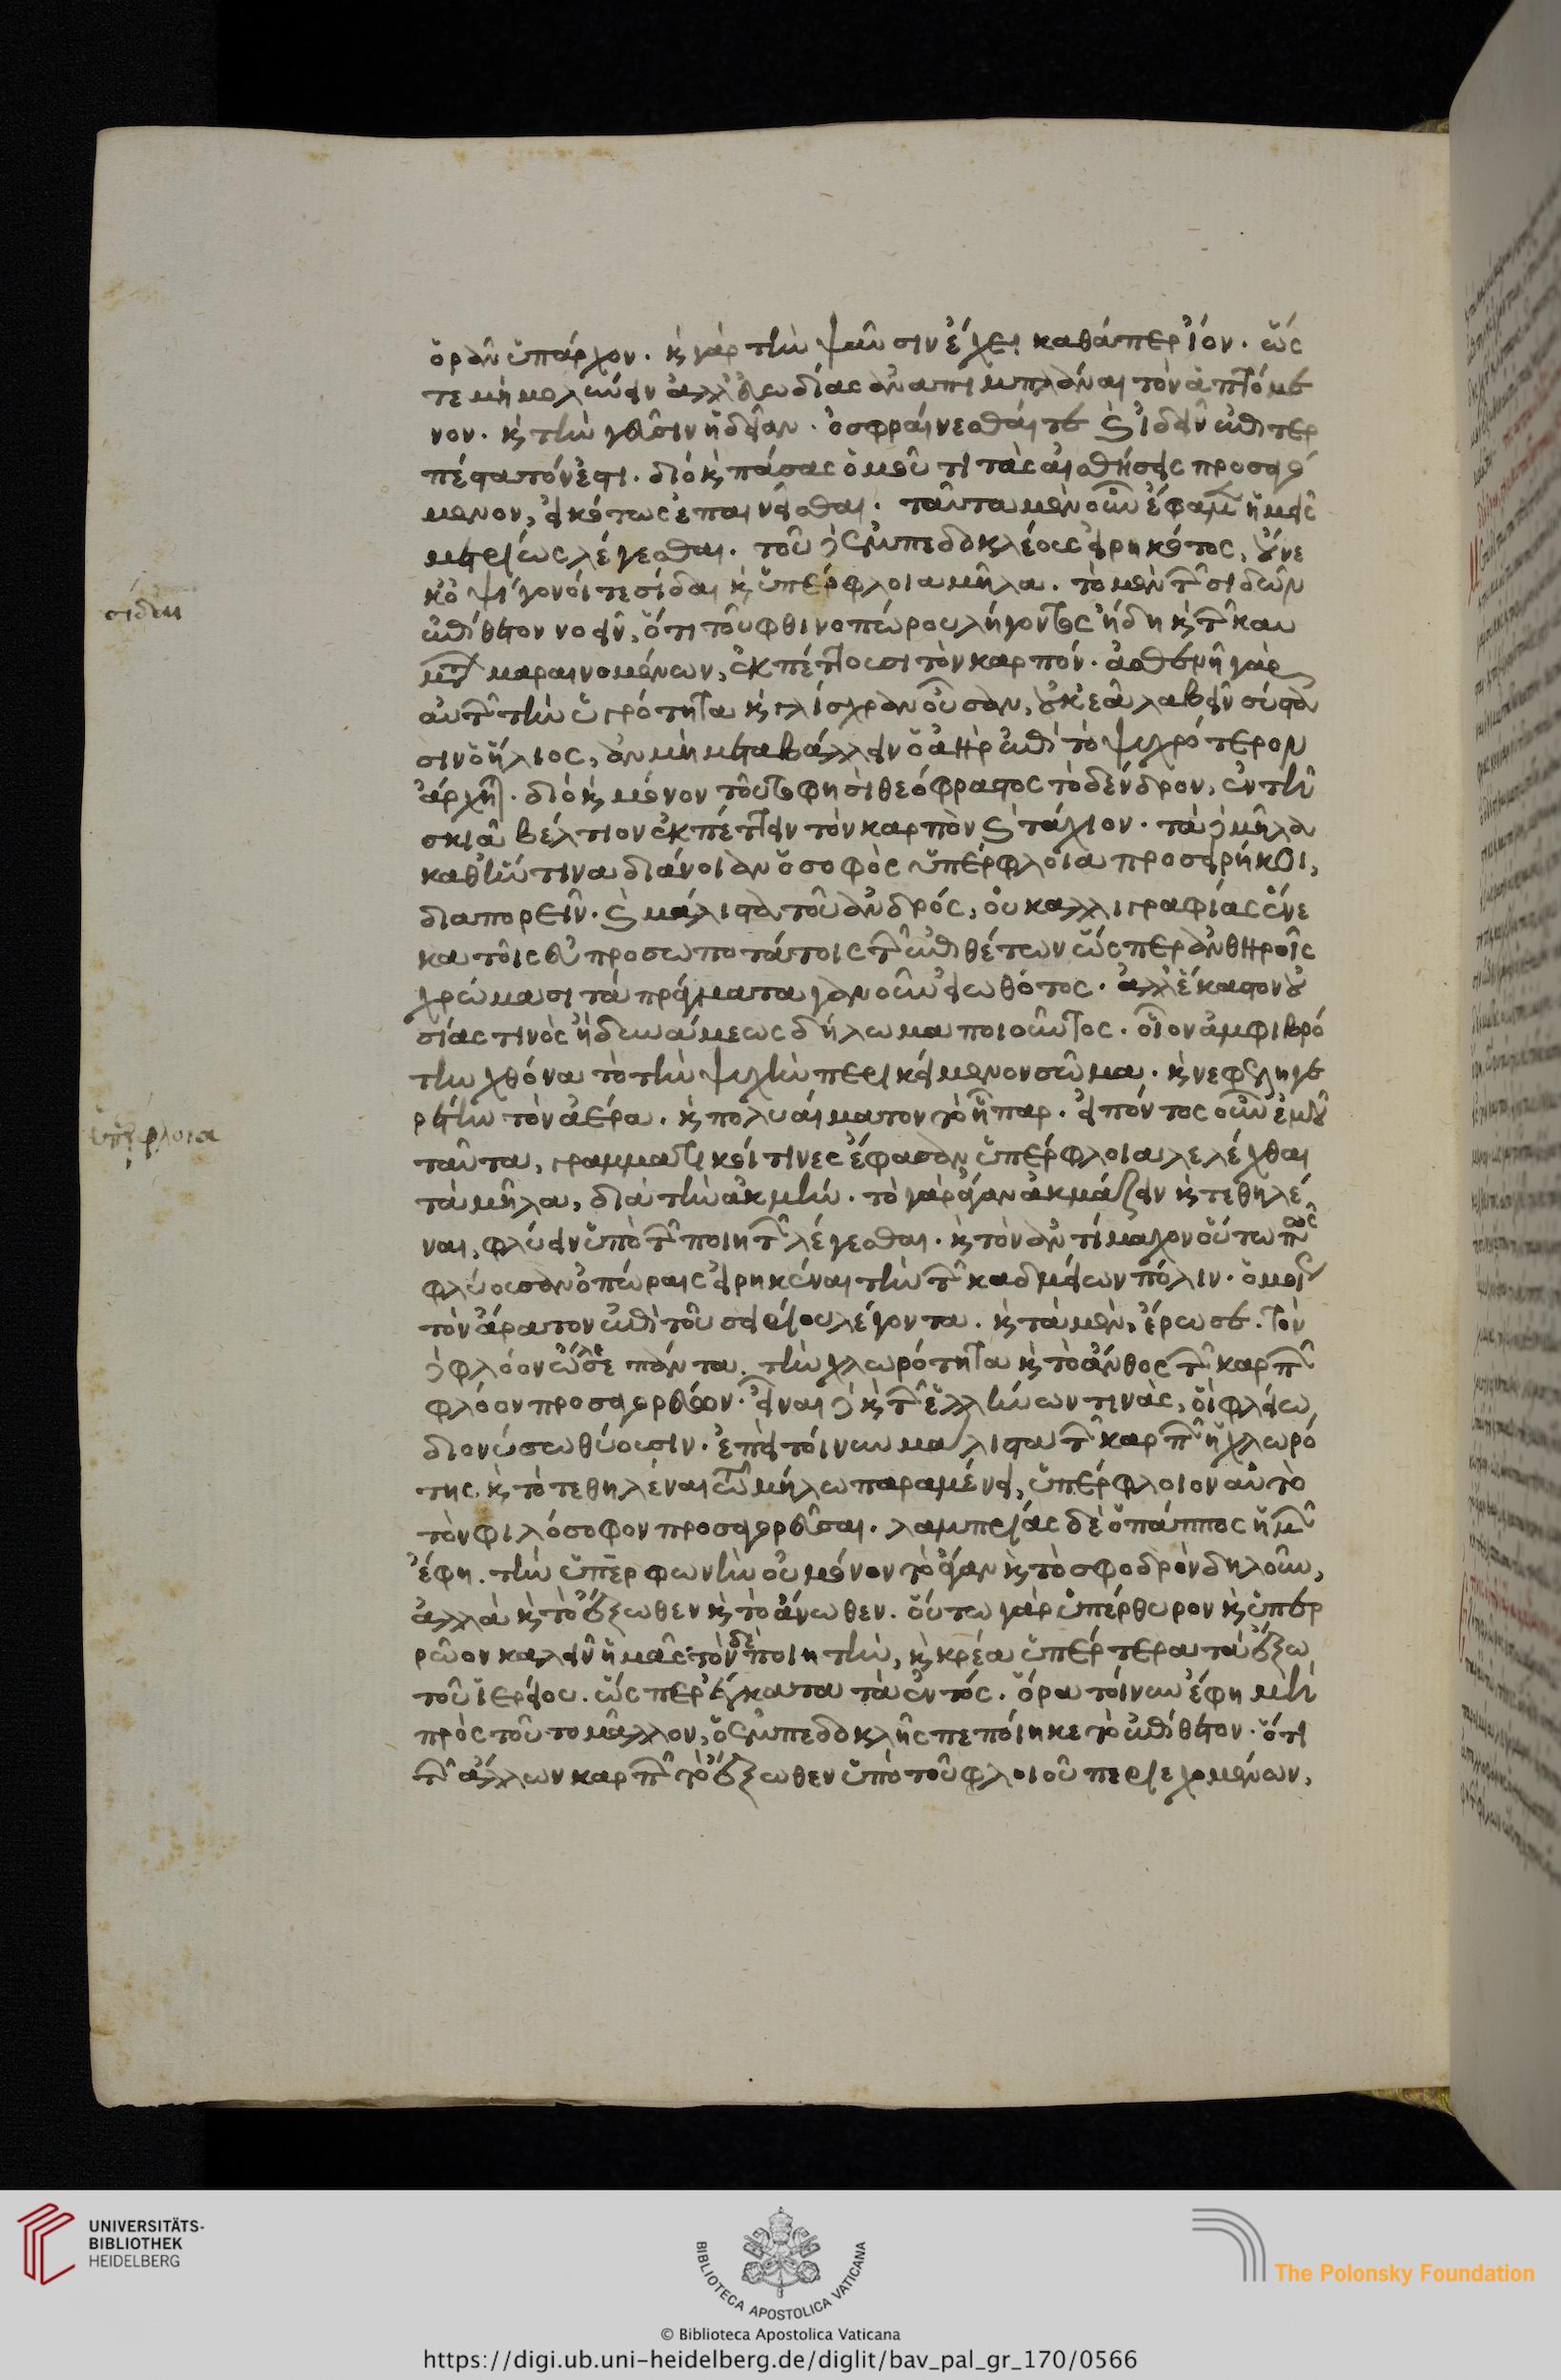 ὁρᾶν ὑπάρχον. ϗ γὰρ τὴν ψαῦσιν ἔχει καθάπερ ἰόν. ὥς
τε μὴ μολύνειν ἀλλ' εὐωδίας ἀναπιμπλάναι τὸν ἁπτόμε
νον. ϗ τὴν γεῦσιν ἡδεῖαν. ὀσφραίνεσθαί τε ϗ ἰδεῖν ἐπιτερ
πέστατόν ἐστι. διὸ ϗ πάσας ὁμοῦ τι τὰς αἰσθήσεις προσαγό
μενον, εἰκότως ἐπαινεῖσθαι. ταῦτα μὲν οὖν ἔφαμεν ἡμεῖς
μετρίως λέγεσθαι. τοῦ δὲ ἐμπεδοκλέους εἰρηκότος, οὕνε
κὀψίγονοί τε σίδαι ϗ ὑπέρφλοια μῆλα. τὸ μὲν τῶν σιδῶν
ἐπίθετον νοεῖν, ὅτι τοῦ φθινοπώρου λήγοντος ἤδη ϗ τῶν καυ
μάτων μαραινομένων, ἐκπέττουσι τὸν καρπόν. ἀσθενῆ γὰρ
αὐτῶν τὴν ὑγρότητα ϗ γλίσχραν οὖσαν, οὐκ ἐᾶ λαβεῖν σύστα
σιν ὁ ἥλιος, ἂν μὴ μεταβάλλειν ὁ ἀὴρ ἐπὶ τὸ ψυχρότερον
ἄρχηται. διὸ ϗ μόνον τοῦτό φησι θεόφραστος τὸ δένδρον, ἐν τῇ
σκιᾷ βέλτιον ἐκπέττειν τὸν καρπὸν ϗ τάχιον. τὰ δὲ μῆλα
καθ' ἥντινα διάνοιαν ὁ σοφὸς ὑπέρφλοια προσειρήκοι,
διαπορεῖν. ϗ μάλιστα τοῦ ἀνδρός, οὐ καλλιγραφίας ἕνε
κα τοῖς εὐπροσωποτάτοις τῶν ἐπιθέτων ὥσπερ ἀνθηροῖς
χρώμασι τὰ πράγματα γανοῦν εἰωθότος. ἀλλ' ἕκαστον οὐ
σίας τινὸς ἢ δυνάμεως δήλωμα ποιοῦντος. οἷον ἀμφιβρό
την χθόνα τὸ τὴν ψυχὴν περικείμενον σῶμα. ϗ νεφεληγε
ρέτην τὸν ἀέρα. ϗ πολυαίματον τὸ ἧπαρ. εἰπόντος οὖν ἐμοῦ
ταῦτα, γραμματικοί τινες ἔφασαν ὑπέρφλοια λελέχθαι
τὰ μῆλα, διὰ τὴν ἀκμήν. τὸ γὰρ ἄγαν ἀκμάζειν ϗ τεθηλέ
ναι, φλύειν ὑπὸ τῶν ποιητῶν λέγεσθαι. ϗ τὸν ἀντίμαχον οὕτω πως
φλύουσαν ὀπώραις εἰρηκέναι τὴν τῶν καδμείων πόλιν. ὁμοίως
τὸν ἄρατον ἐπὶ τοῦ σειρίου λέγοντα. ϗ τὰ μὲν, ἔρωσε. τὸν
δὲ φλόον ὤλεσε πάντα. τὴν χλωρότητα ϗ τὸ ἄνθος τῶν καρπῶν
φλόον προσαγορεύειν. εἶναι δὲ ϗ τῶν ἑλλήνων τινὰς, οἳ φλείω
διονύσω θύουσιν. ἐπεὶ τοίνυν μάλιστα τῶν καρπῶν ἡ χλωρό
της ϗ τὸ τεθηλέναι τῶ μήλω παραμένει, ὑπέρφλοιον αὐτὸ
τὸν φιλόσοφον προσαγορεῦσαι. λαμπρίας δὲ ὁ πάππος ἡμῶν
ἔφη. τὴν ὑπὲρ φωνὴν οὐ μόνον τὸ ἄγαν ϗ τὸ σφοδρὸν δηλοῦν,
ἀλλὰ ϗ τὸ ἔξωθεν ϗ τὸ ἄνωθεν. οὕτω γὰρ ὑπέρθυρον ϗ ὑπερ
ρῶον καλεῖν ἡμᾶς. τὸν δὲ ποιητὴν, ϗ κρέα ὑπέρτερα τὰ ἔξω
τοῦ ἱερείου. ὥσπερ ἔγκατα τὰ ἐντός. ὅρα τοίνυν ἔφη μὴ
πρὸς τοῦτο μᾶλλον, ὁ ἐμπεδοκλῆς πεποίηκε τὸ ἐπίθετον. ὅτι
τῶν ἄλλων καρπῶν τὸ ἔξωθεν ὑπὸ τοῦ φλοιοῦ περιεχομένων,
σίδαι
ὑπέρφλοια
UNIVERSITÄTS-
BIBLIOTHEK
HEIDELBERG
BIBLIOTECA APOSTOLICA VATICANA
© Biblioteca Apostolica Vaticana
The Polonsky Foundation
https://digi.ub.uni-heidelberg.de/diglit/bav_pal_gr_170/0566